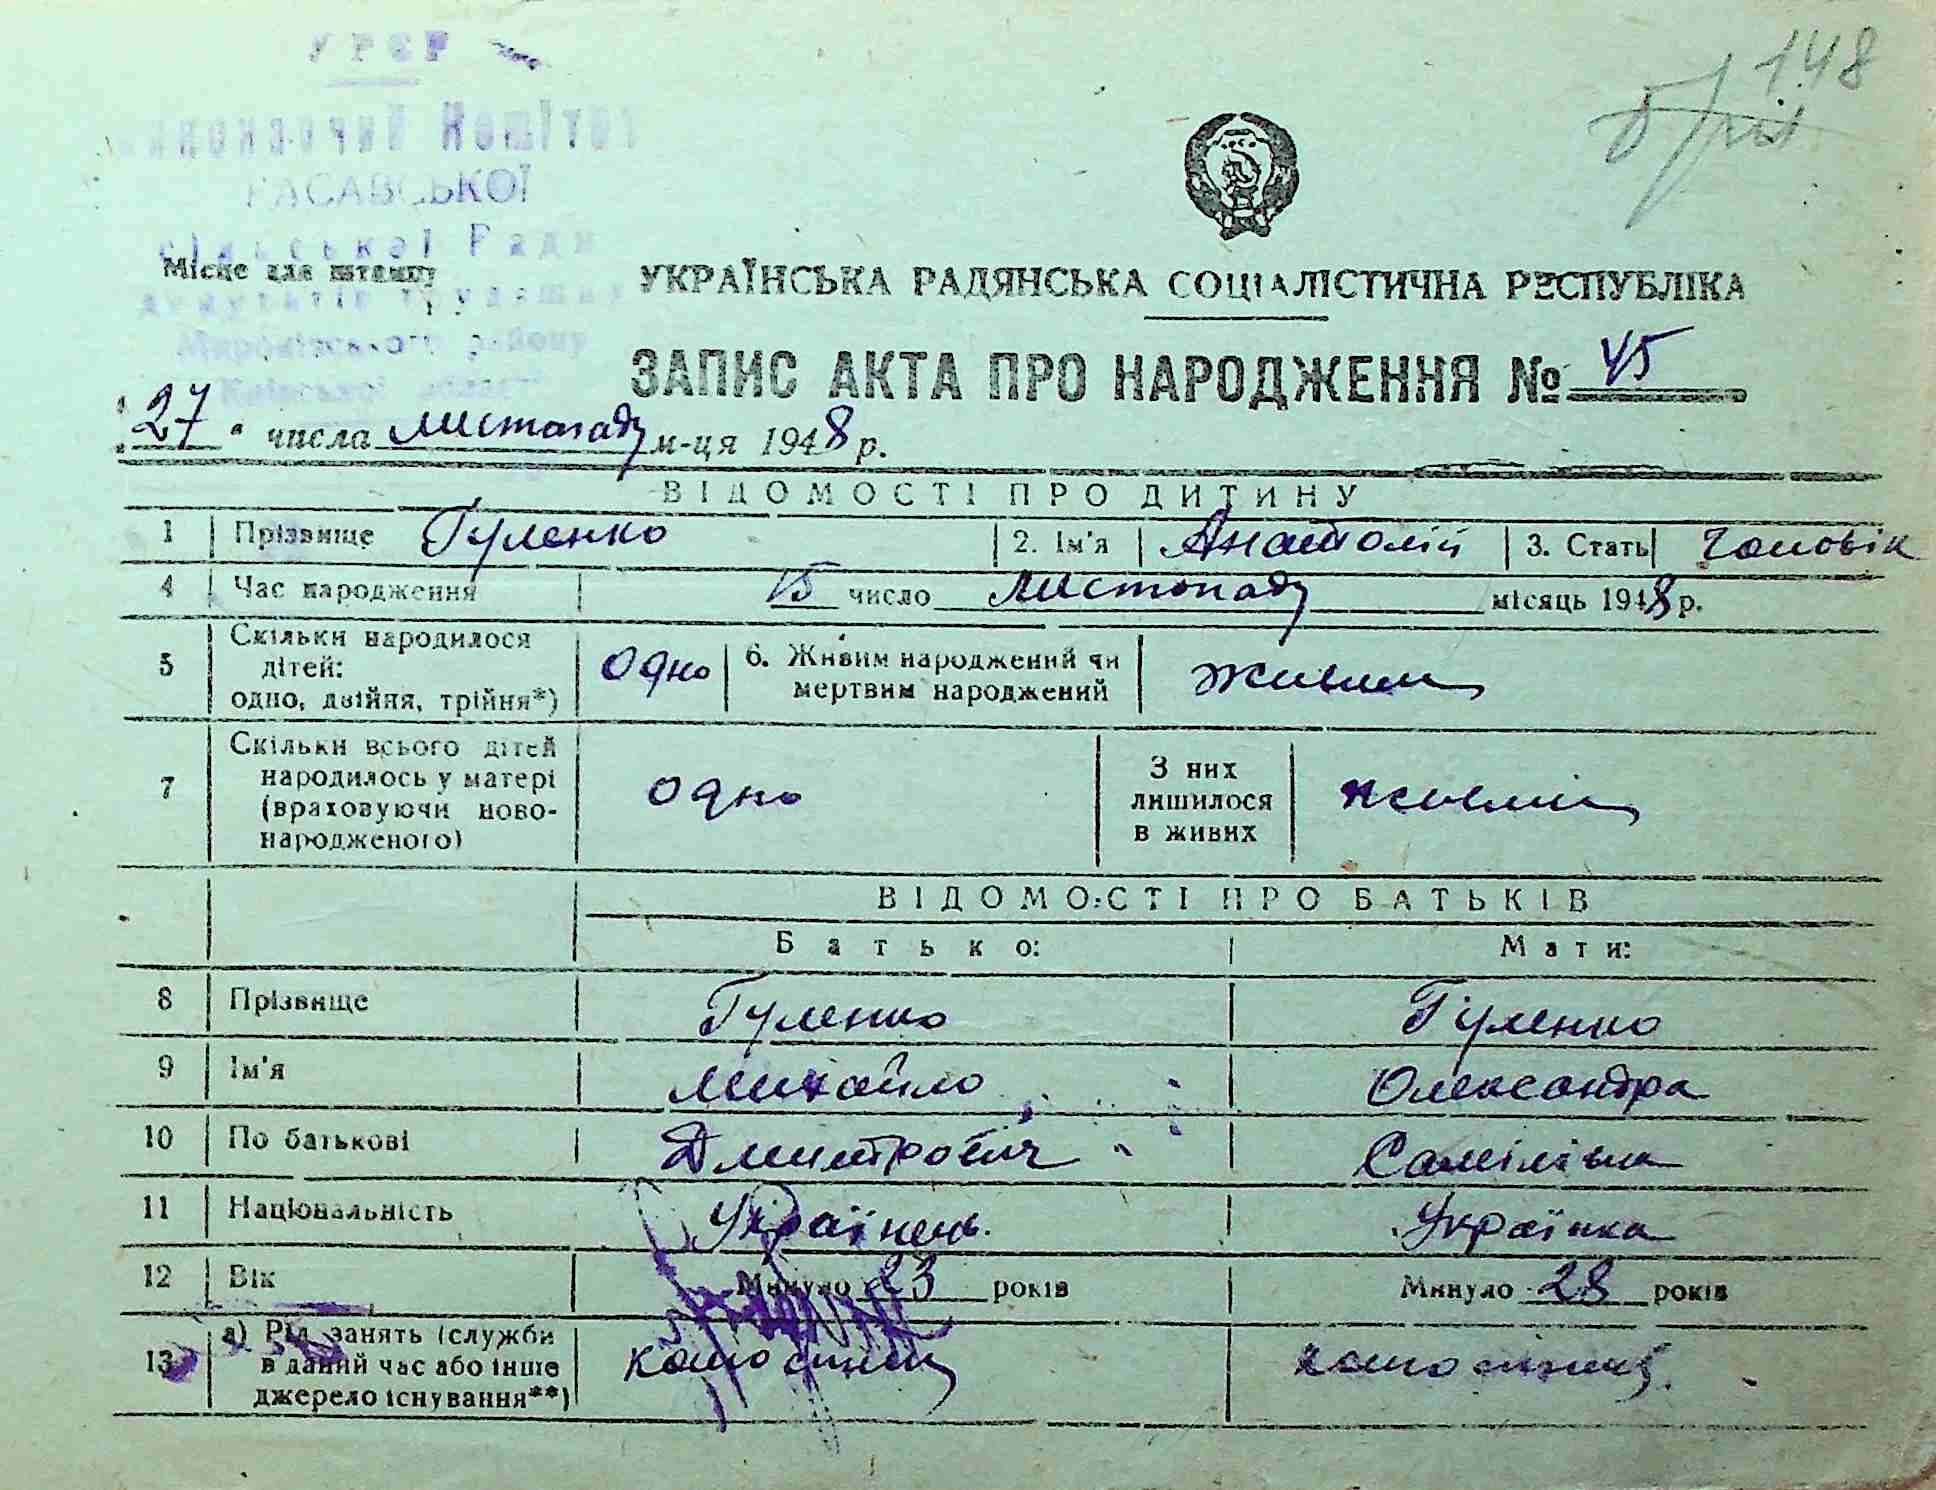 148
УРСР
Виконавчий Комітет
РАСАВСЬКОЇ
сільської Ради
депутатів трудящих
Миронівського району
Київської області
Місце для штампу
УКРАЇНСЬКА РАДЯНСЬКА СОЦІАЛІСТИЧНА РЕСПУБЛІКА
ЗАПИС АКТА ПРО НАРОДЖЕННЯ № 45
"27" числа листопаду м-ця 1948 р.
ВІДОМОСТІ ПРО ДИТИНУ
1 Прізвище Гуленко 2. Ім'я Анатолій 3. Стать Чоловік
4 Час народження 15 число листопаду місяць 1948 р.
5 Скільки народилося дітей: одно, двійня, трійня*) одно 6. Живим народжений чи мертвим народжений живим
7 Скільки всього дітей народилось у матері (враховуючи новонародженого) одно З них лишилося в живих
ВІДОМОСТІ ПРО БАТЬКІВ
Батько: Мати:
8 Прізвище Гуленко Гуленко
9 Ім'я Михайло Олександра
10 По батькові Дмитрович Самілівна
11 Національність Українець. Українка
12 Вік Минуло 23 років Минуло 28 років
13 а) Рід занять (служби в даний час або інше джерело існування**)